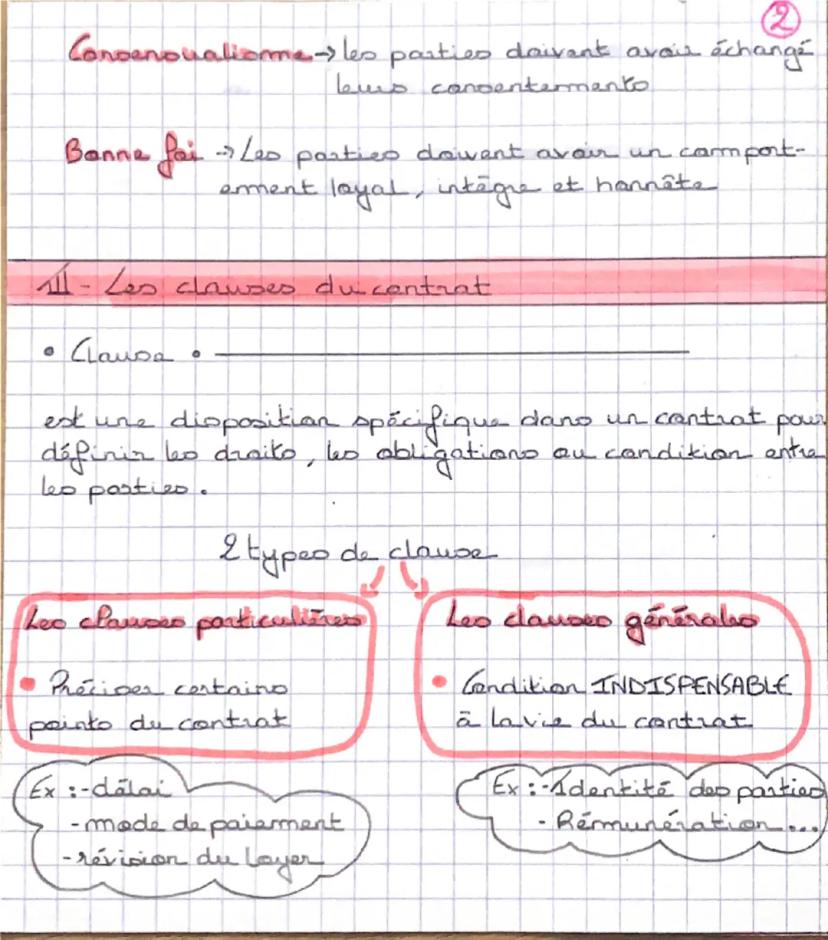 2
Consensualisme → les parties doivent avoir échangé
leurs consentements
Bonne foi → Les parties doivent avoir un comport-
ement loyal, intègre et honnête
III - Les clauses du contrat
• Clause •
est une disposition spécifique dans un contrat pour
définir les droits, les obligations ou condition entre
les parties.
2 types de clause
Les clauses particulières
• Préciser certains
points du contrat
Ex : - délai
- mode de paiement
- révision du loyer
Les clauses générales
• Condition INDISPENSABLE
à la vie du contrat
Ex : - Identité des parties
- Rémunération...